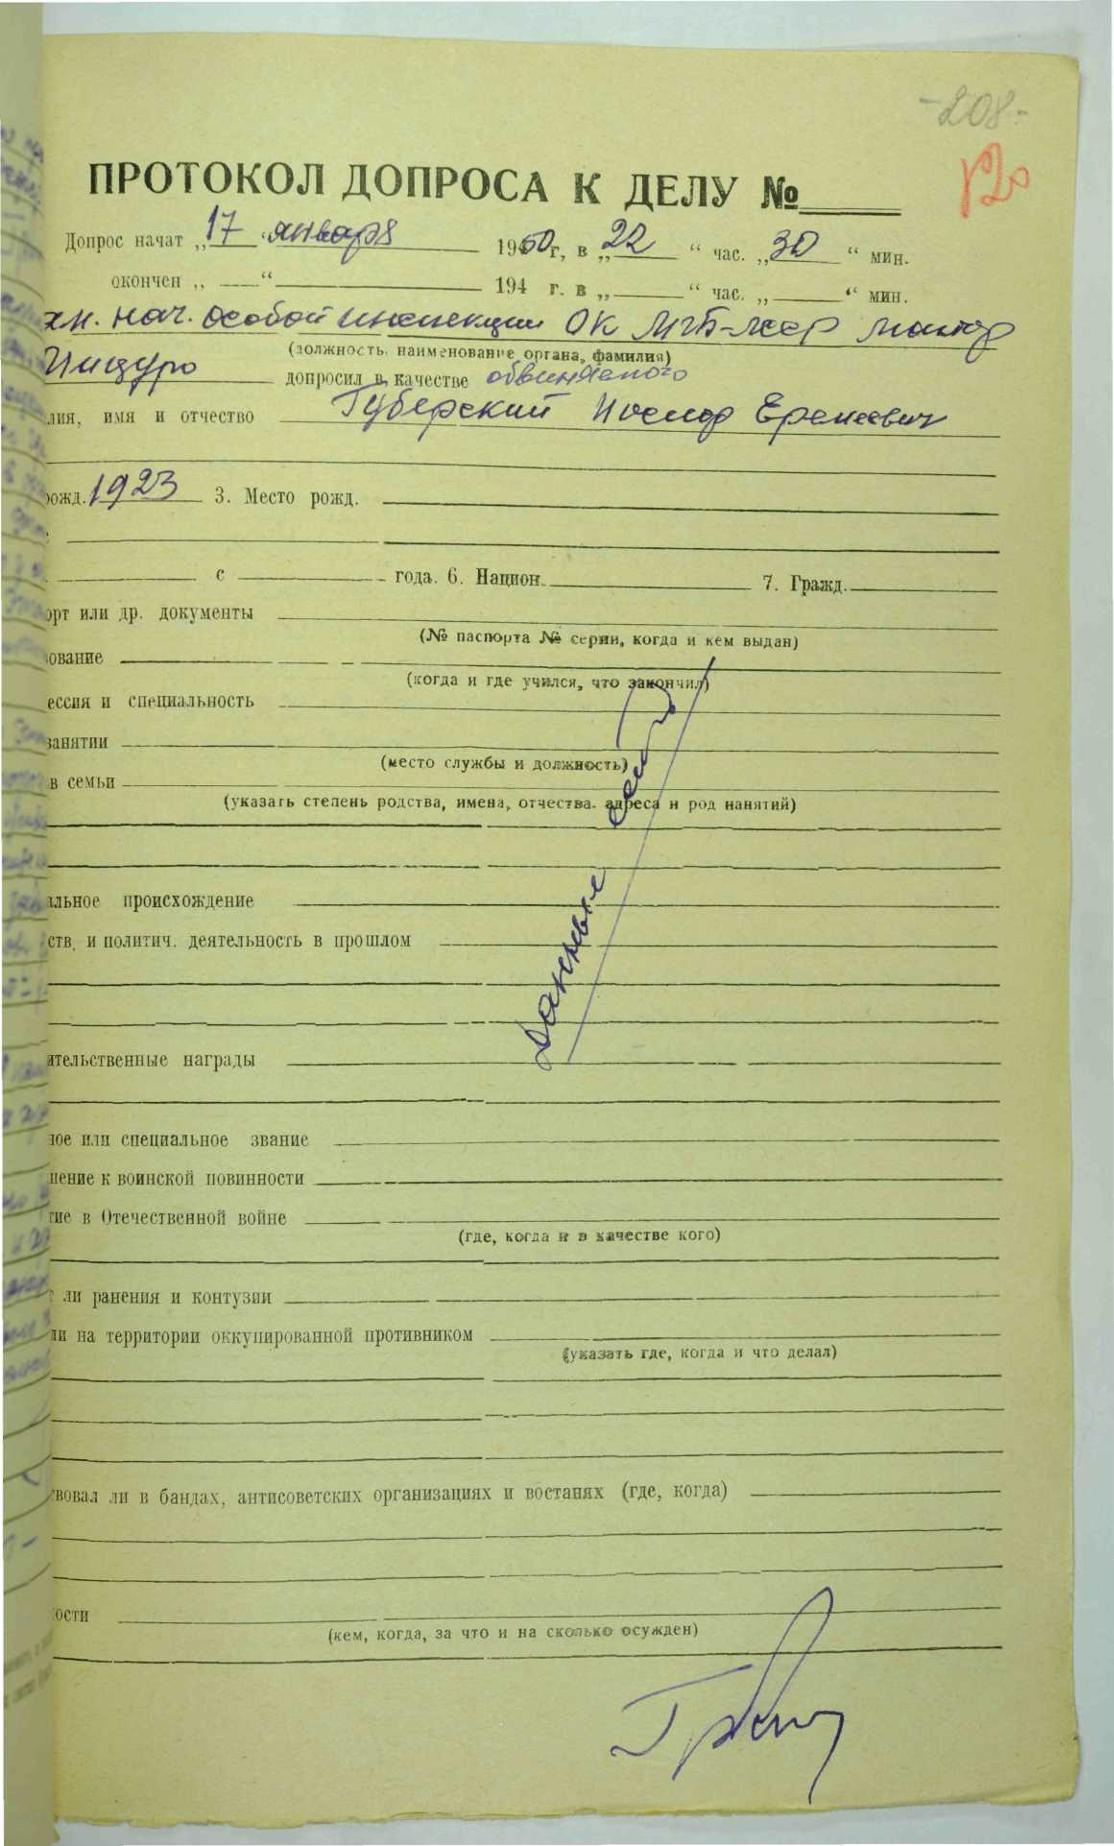 -208-
120
ПРОТОКОЛ ДОПРОСА К ДЕЛУ №
Допрос начат „17" января 1950 г, в „22" час. „30" мин.
окончен „ " 194 г. в „ " час. „ " мин.
нач. особой инспекции ОК МГБ-ЛССР майор
(должность, наименование органа, фамилия)
допросил в качестве обвиняемого
лия, имя и отчество Губерский Иосиф Еремеевич
рожд. 1923 3. Место рожд.
с года. 6. Национ. 7. Гражд.
орт или др. документы
(№ паспорта № серии, когда и кем выдан)
ование
(когда и где учился, что закончил)
ессия и специальность
занятии
(место службы и должность)
в семьи
(указать степень родства, имена, отчества. адреса и род нанятий)
Данные есть
альное происхождение
ств. и политич. деятельность в прошлом
ительственные награды
ное или специальное звание
шение к воинской повинности
тие в Отечественной войне
(где, когда и в качестве кого)
ли ранения и контузии
ли на территории оккупированной противником
(указать где, когда и что делал)
твовал ли в бандах, антисоветских организациях и востанях (где, когда)
ости
(кем, когда, за что и на сколько осужден)